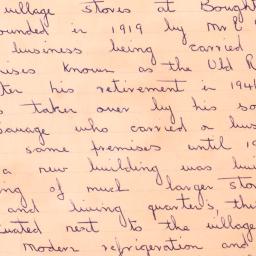 village stores at Bought
ounded in 1919 by Mr E
business being carried
ises known as the Old R
ter his retirement in 194
s taken over by his so
avage who carried a bus
some premises until 19
a new building was bui
ing of much larger stor
and living quarters, thi
uated next to the village
Modern refrigeration and